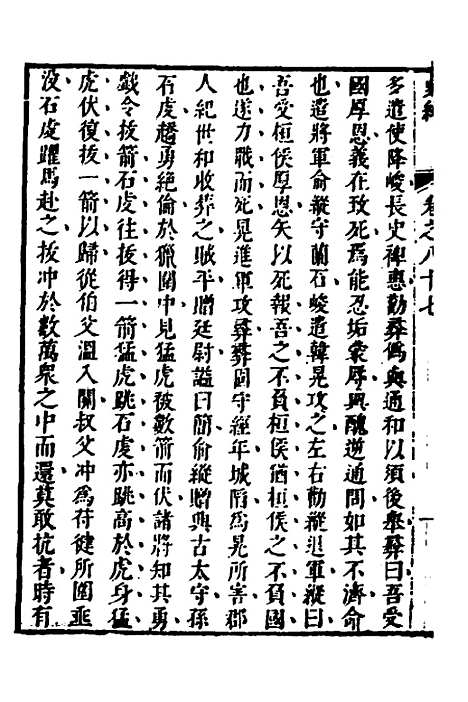 卷之八十七
多遣使降峻長史裨惠勸彝僞與通和以須後舉彝曰吾受
國厚恩義在致死焉能忍垢蒙辱與醜逆通問如其不濟命
也遣將軍俞縱守蘭石峻遣韓晃攻之左右勸縱退軍縱曰
吾受桓侯厚恩矢以死報吾之不負桓侯猶桓侯之不負國
也遂力戰而死晃進軍攻彝彝固守經年城陷爲晃所害郡
人紀世和收葬之賊平贈廷尉諡曰簡俞縱贈興古太守孫
石虔趫勇絶倫於獵圍中見猛虎被數箭而伏諸將知其勇
戯令拔箭石虔往拔得一箭猛虎跳石虔亦跳高於虎身猛
虎伏復拔一箭以歸從伯父溫入關叔父冲爲苻健所圍垂
没石虔躍馬赴之拔冲於數萬衆之中而還莫敢抗者時有